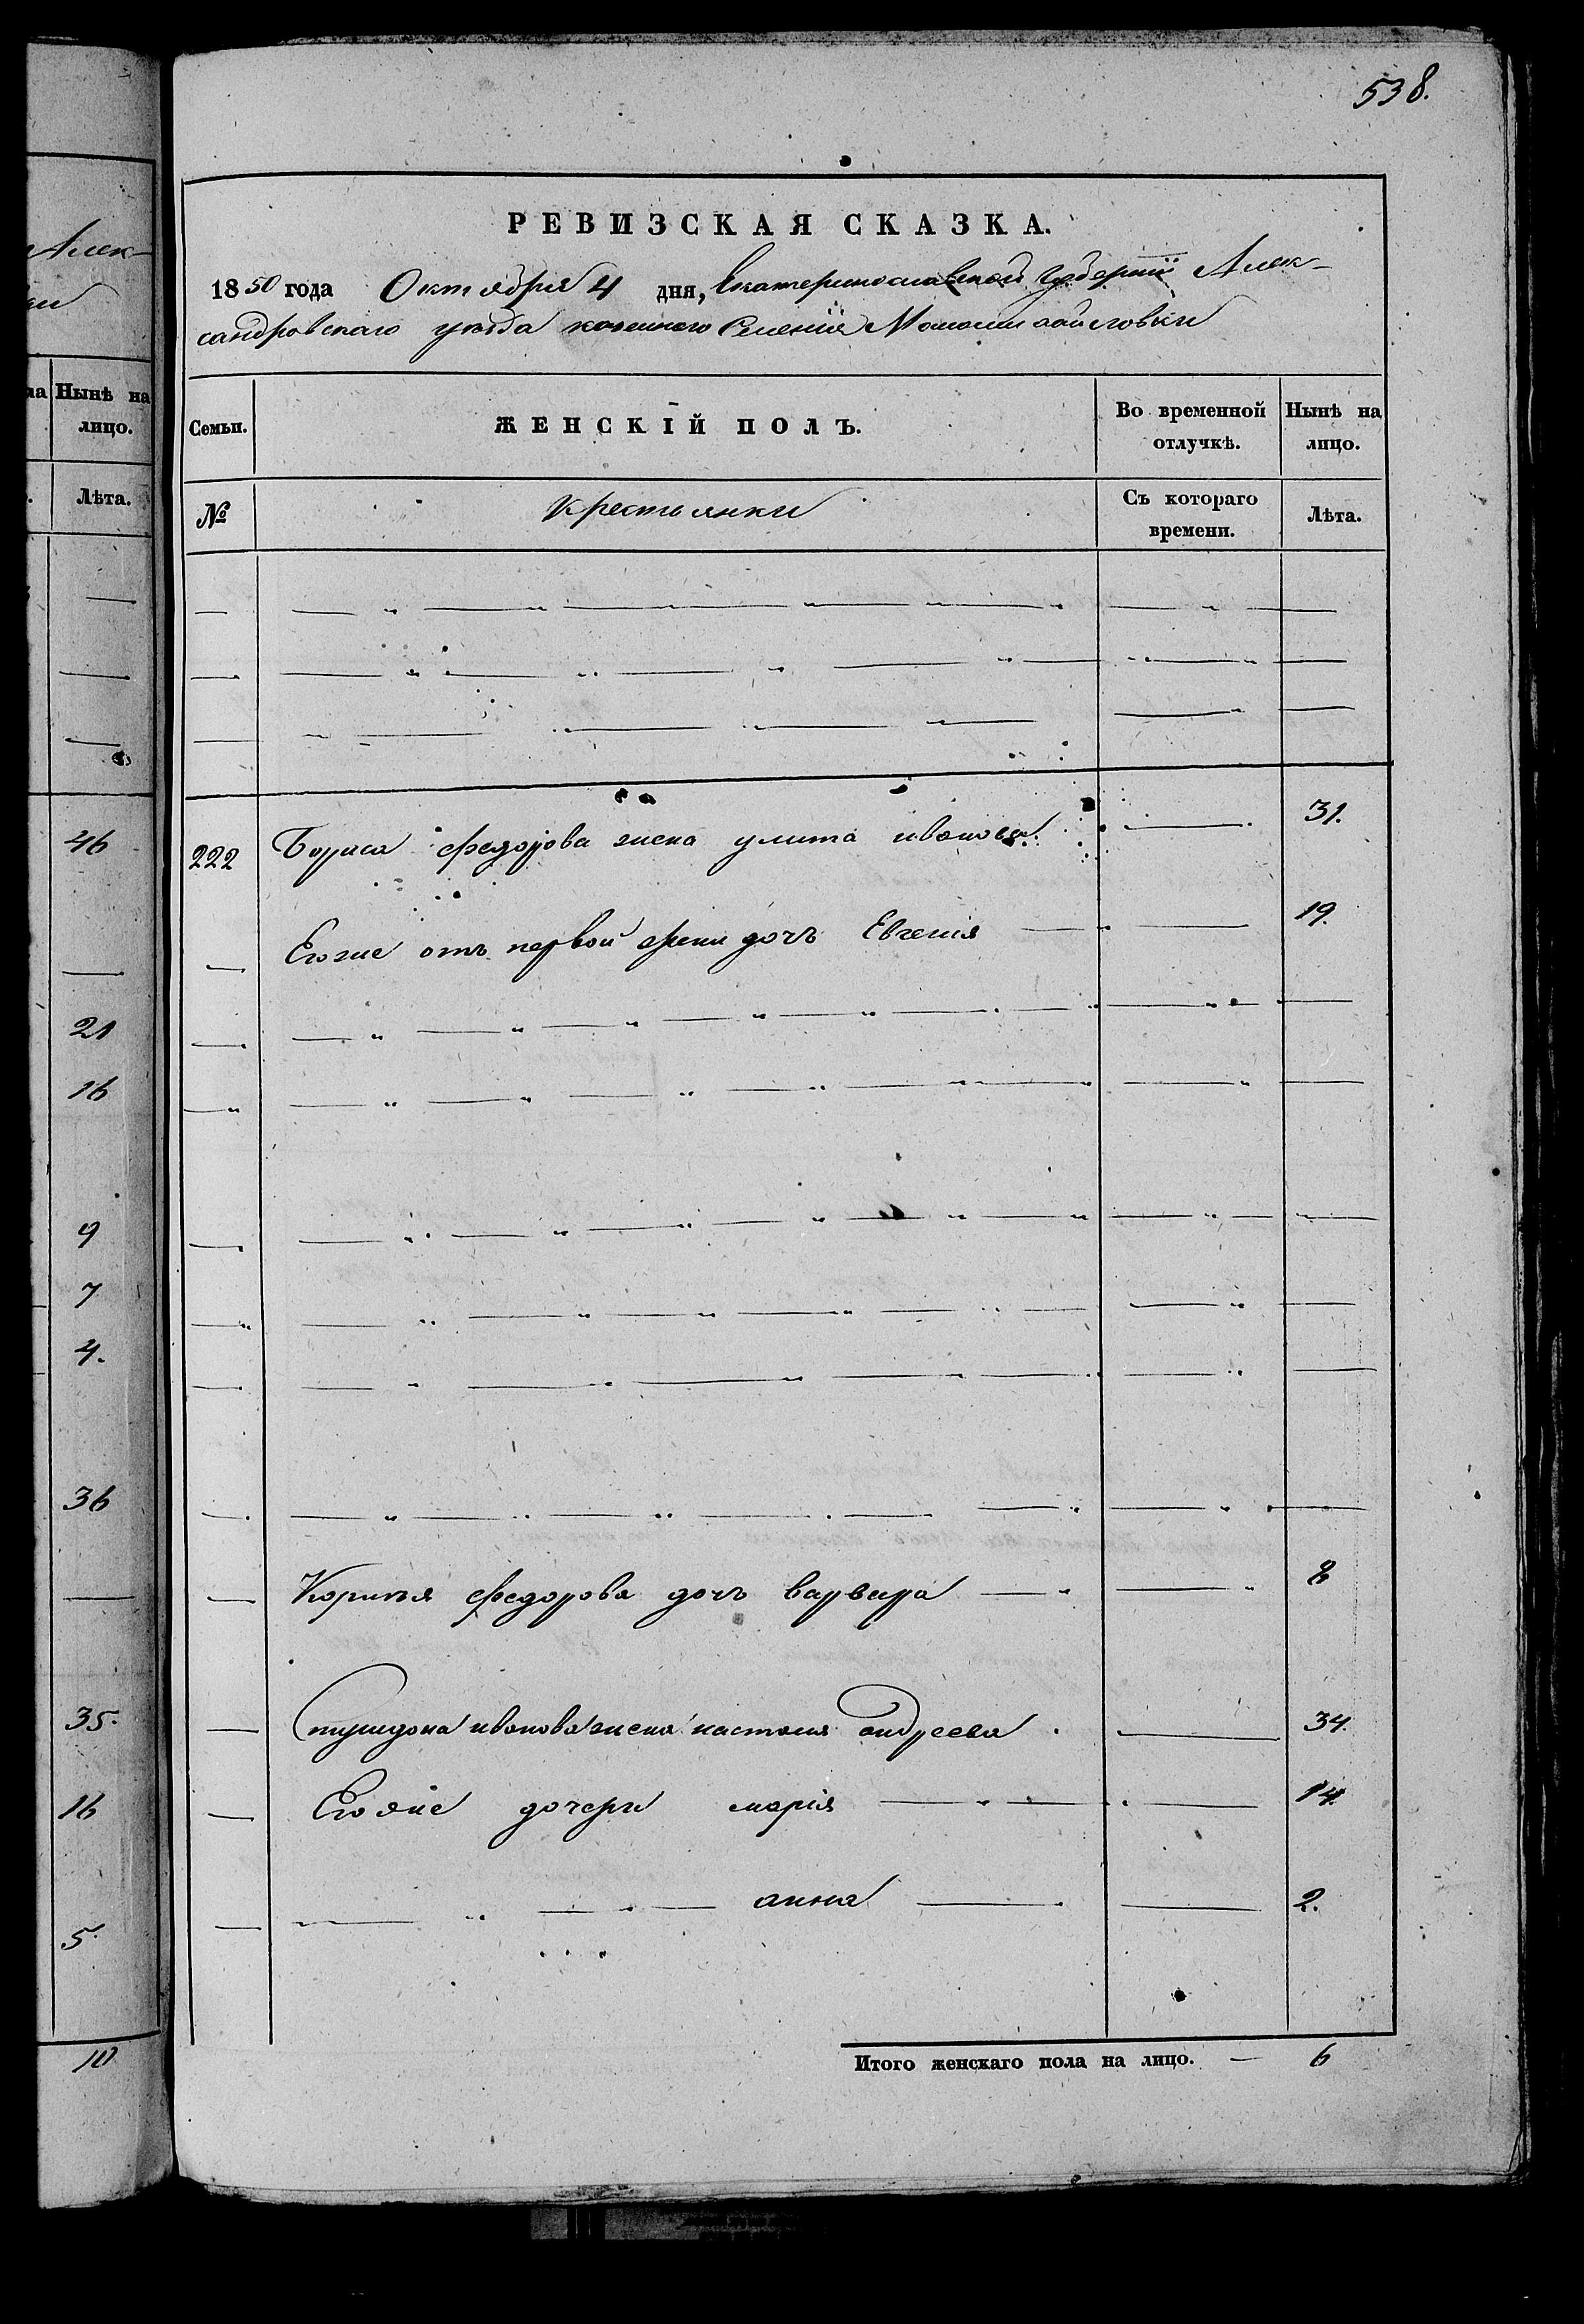 538.
Алек-
РЕВИЗСКАЯ СКАЗКА.
1850 года Октября 4 дня, Екатеринославской Губернии Алек-
сандровскаго уезда казеннаго Селенія
Нынѣ на
лицо.
Лѣта.
Семьи.
ЖЕНСКІЙ ПОЛЪ.
Во временной
отлучкѣ.
Нынѣ на
лицо.
№
Крестьянки
Съ котораго
времени.
Лѣта.
46
222 Бориса федорова жена улита иванова. 31.
Егоже отъ первой жены дочъ Евгенія 19.
21
16
9
7
4.
36
федорова дочъ варвара 8
35.
иванова жена настасия андреева 34.
16
Егоже дочери марія 14.
анна 2.
5.
10
Итого женскаго пола на лицо. — 6